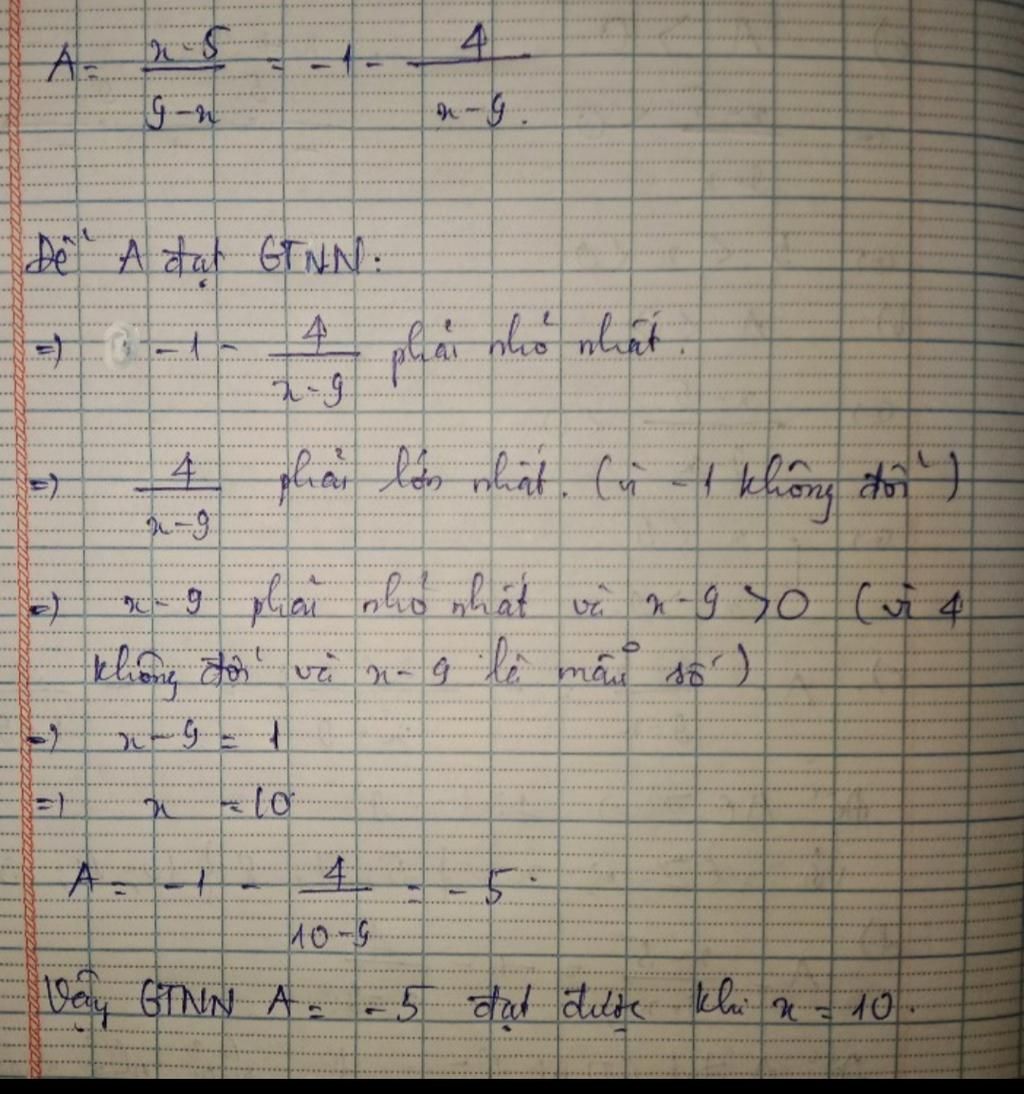 A = \frac{x-5}{9-x} = -1 - \frac{4}{x-9}.
Để A đạt GTNN:
=) -1 - \frac{4}{x-9} phải nhỏ nhất.
=) \frac{4}{x-9} phải lớn nhất. (vì -1 không đổi)
=) x-9 phải nhỏ nhất và x-9 >0 (vì 4
không đổi và x-9 là mẫu số)
=) x-9 = 1
=) x = 10
A = -1 - \frac{4}{10-9} = -5.
Vậy GTNN A = -5 đạt được khi x = 10.